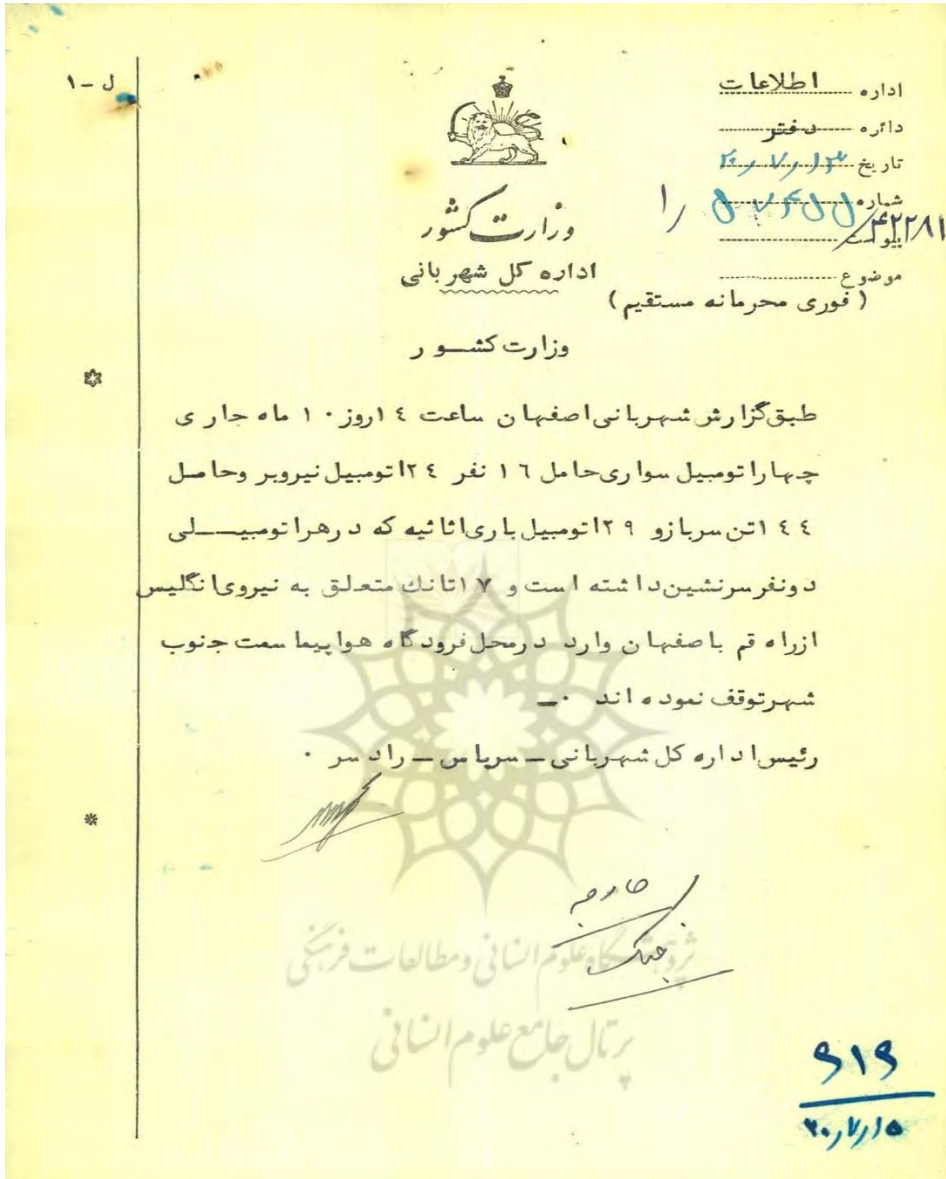 ل -۱
اداره اطلاعات
دائره دفتر
تاریخ ۲۰/۷/۱۳
شماره
۴۲۲۸۱
پیوست
موضوع
وزارت کشور
اداره کل شهربانی
( فوری محرمانه مستقیم )
وزارت کشـــور
طبق گزارش شهربانی اصفهان ساعت ١٤ روز ١٠ ماه جاری
چهار اتومبیل سواری حامل ١٦ نفر ٢٤ اتومبیل نیروبر وحامل
١٤٤ تن سرباز و ٢٩ اتومبیل باری اثاثیه که در هر اتومبیـــلی
دو نفر سرنشین داشته است و ١٧ تانك متعلق به نیروی انگلیس
از راه قم باصفهان وارد در محل فرودگاه هواپیما سمت جنوب
شهر توقف نموده اند ۰ــ
رئیس اداره کل شهربانی ــ سرپاس ــ رادسر ۰
جنگ
پژوهشگاه علوم انسانی و مطالعات فرهنگی
پرتال جامع علوم انسانی
۹۱۹
۲۰/۷/۱۵